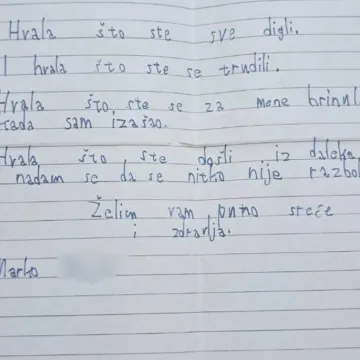 Hvala što ste sve digli.
I hvala što ste se trudili.
Hvala što ste se za mene brinuli
kada sam izašao.
Hvala što ste došli iz daleka,
nadam se da se nitko nije razbol
Želim vam puno sreće
i zdravlja.
Marko